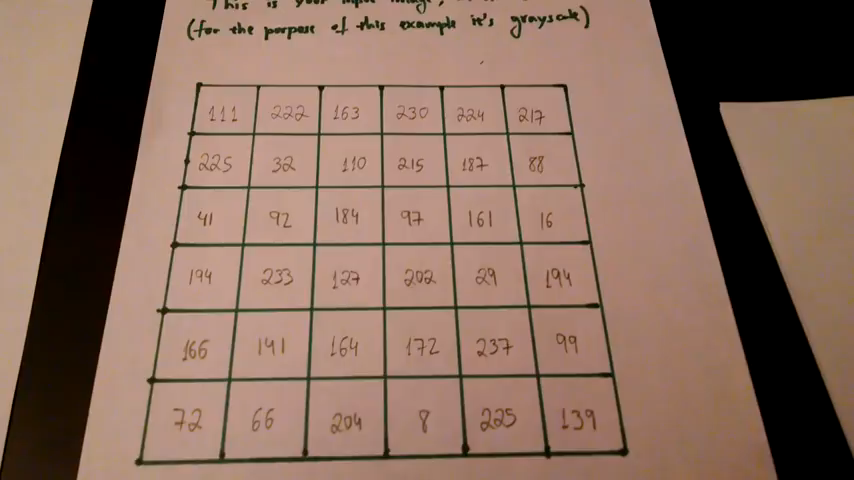 This is your input image,
(for the purpose of this example it's grayscale)
111 222 163 230 224 217
225 32 110 215 187 88
41 92 184 97 161 16
194 233 127 202 29 194
166 141 164 172 237 99
72 66 204 8 225 139